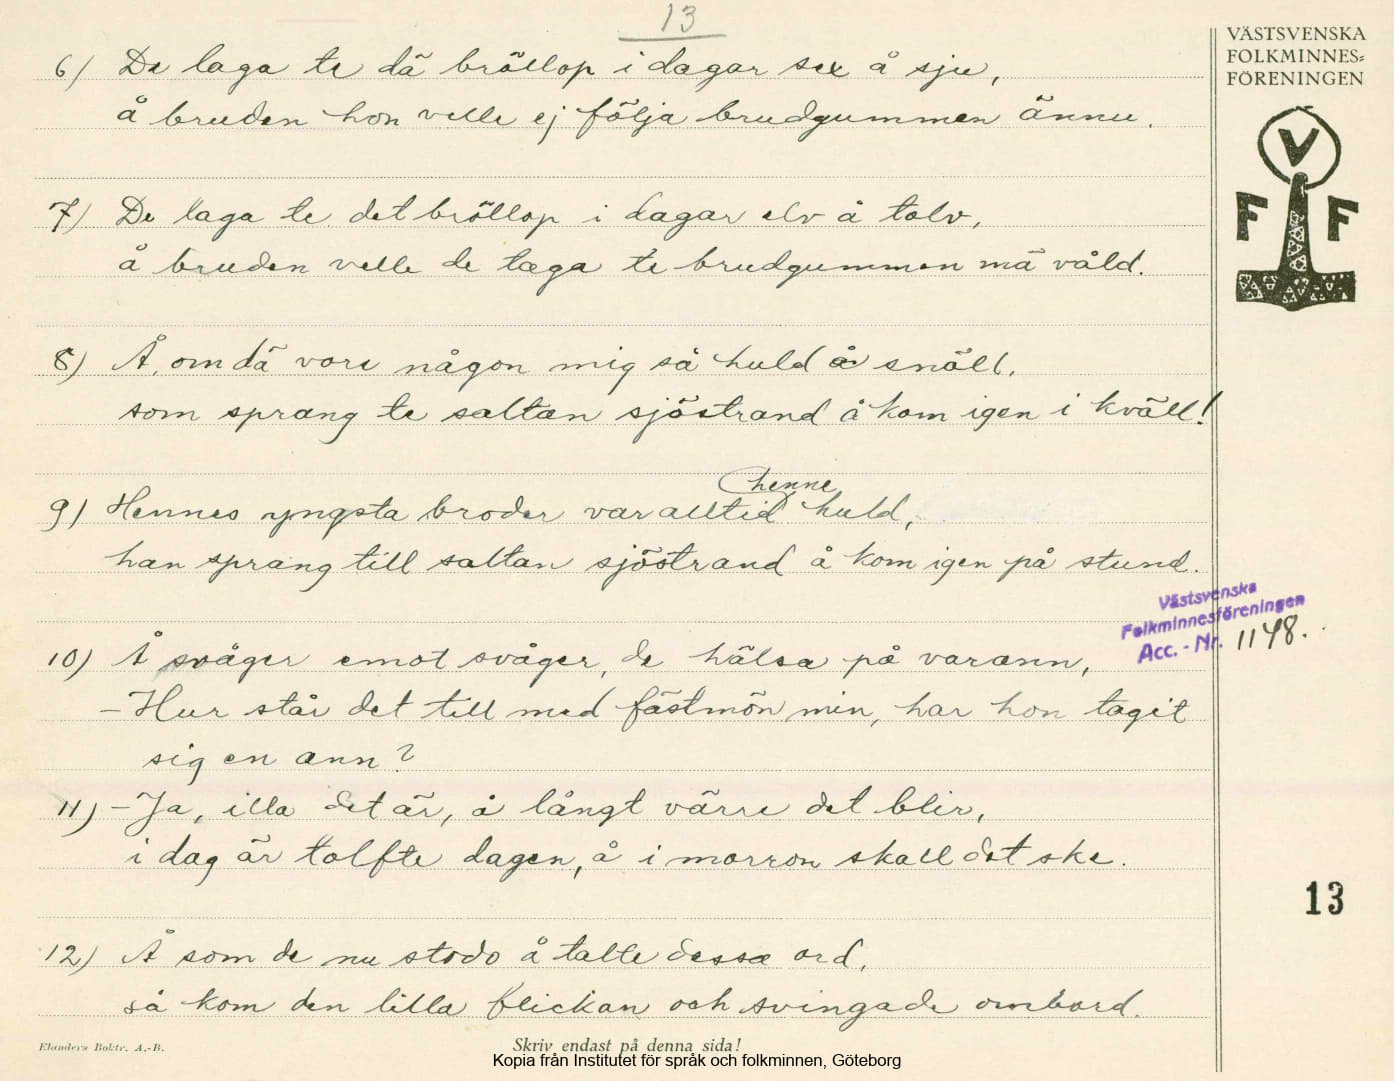 13
VÄSTSVENSKA
FOLKMINNES-
FÖRENINGEN
V
F F
6) De laga te dä bröllop i dagar sex å sju,
å bruden hon velle ej följa brudgummen ännu.
7) De laga te det bröllop i dagar elv å tolv,
å bruden velle de taga te brudgummen mä våld.
8) Å, om dä vore någon mig så huld å snäll,
som sprang te saltan sjöstrand å kom igen i kväll!
henne
9) Hennes yngsta broder var alltid huld,
han sprang till saltan sjöstrand å kom igen på stund.
Västsvenska
Folkminnesföreningen
Acc. - Nr. 1148.
10) Å svåger emot svåger, de hälsa på varann,
– Hur står det till med fästmön min, har hon tagit
sig en ann?
11) – Ja, illa det är, å långt värre det blir,
i dag är tolfte dagen, å i morron skall det ske.
13
12) Å som de nu stodo å talte dessa ord,
så kom den lilla flickan och svingade ombord.
Elanders Boktr. A.-B.
Skriv endast på denna sida!
Kopia från Institutet för språk och folkminnen, Göteborg